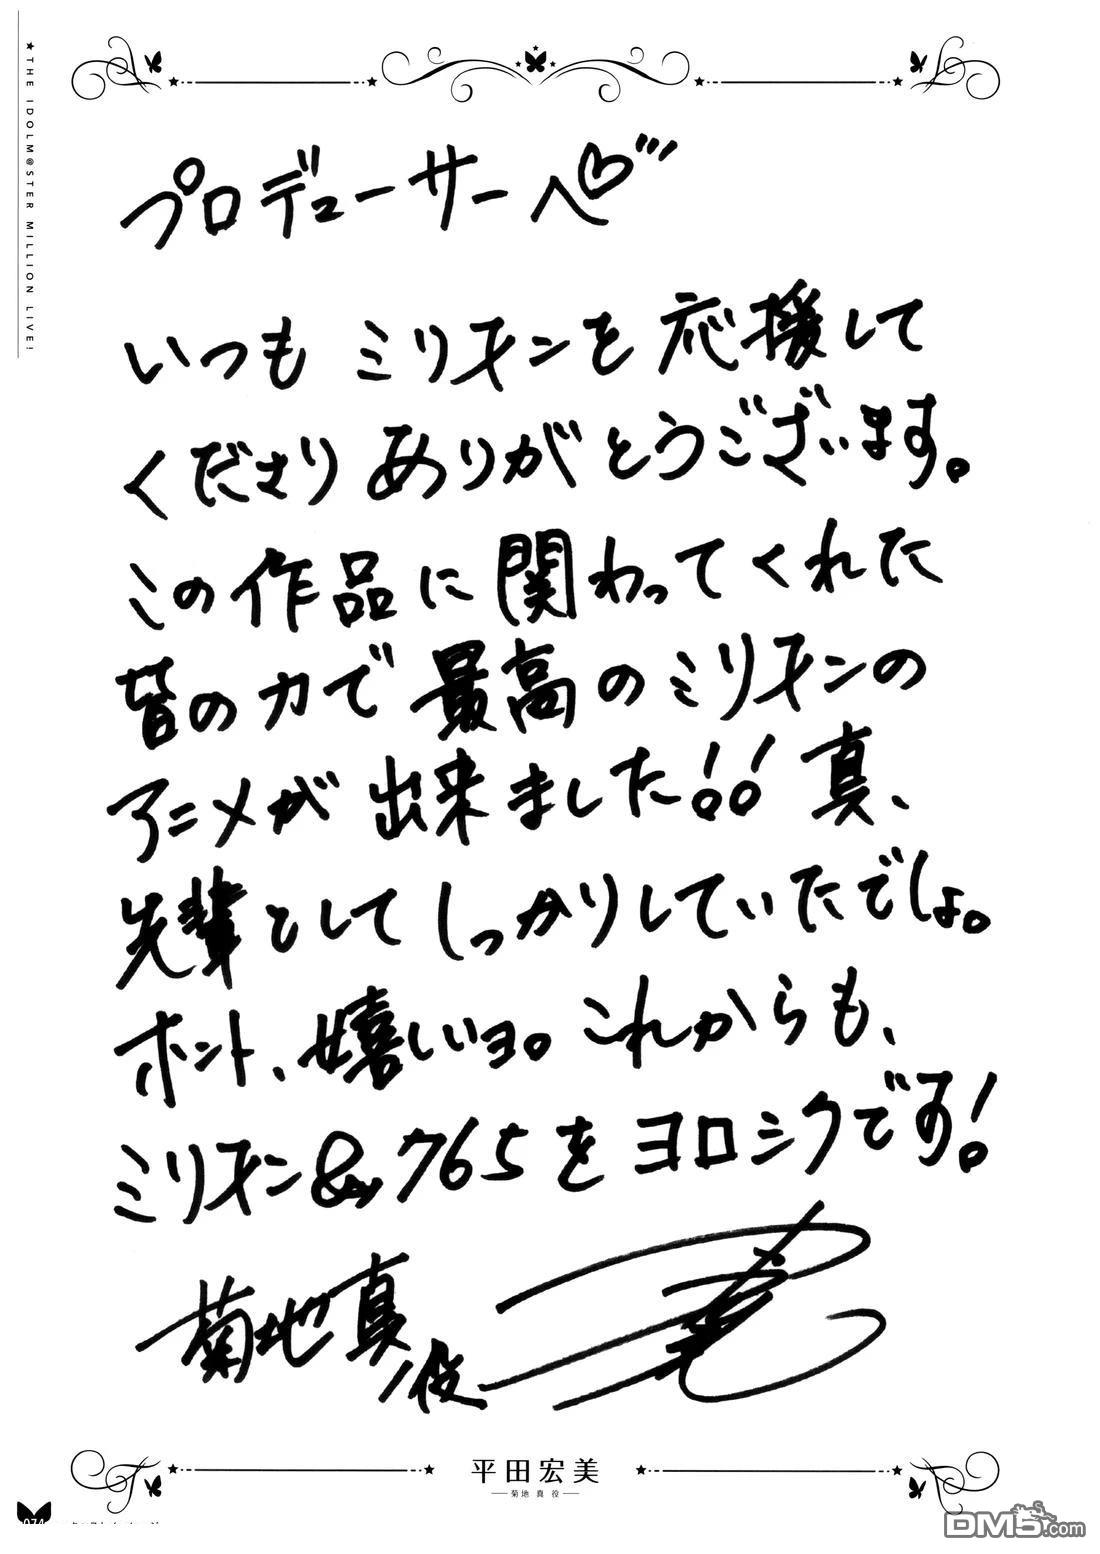 ★THE IDOLM@STER MILLION LIVE!
プロデューサーへ♡
いつもミリオンを応援して
くださりありがとうございます。
この作品に関わってくれた
皆の力で最高のミリオンの
アニメが出来ました!!真、
先輩としてしっかりしていたでしょ。
ホント、嬉しいヨ。これからも、
ミリオン&765をヨロシクです!
菊地真役
平田宏美
菊地 真 役
074
DM5.com